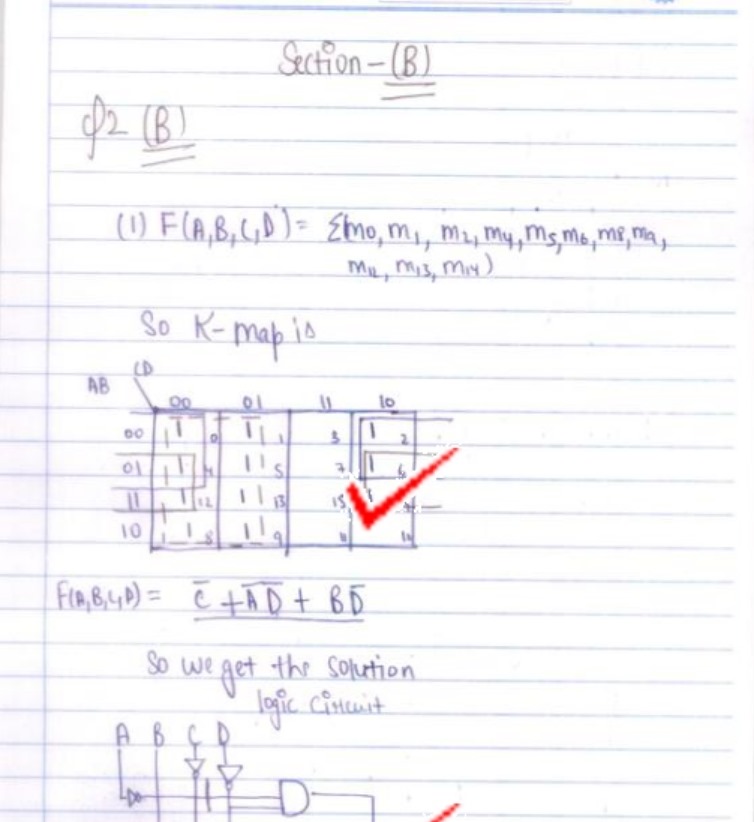 Section-(B)
Q2 (B)
(1) F(A,B,C,D) = Σ(m0, m1, m2, m4, m5, m6, m8, m9,
m12, m13, m14)
So K-map is
CD
AB
00 01 11 10
00 1 0 1 1 3 1 2
01 1 4 1 5 7 1 6
11 1 12 1 13 15 1 14
10 1 8 1 9 11 10
F(A,B,C,D) = C̅ + A̅ D̅ + B D̅
So we get the solution
logic circuit
A B C D